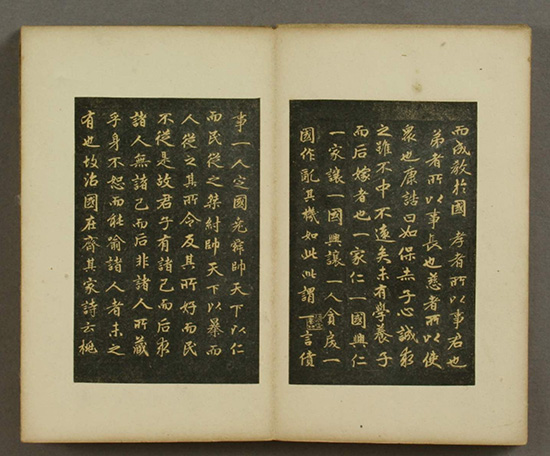 而成教於國 孝者所以事君也
弟者所以事長也慈者所以使
衆也康誥曰如保赤子心誠求
之雖不中不遠矣未有學養子
而后嫁者也一家仁一國興仁
一家讓一國興讓一人貪戾一
國作亂其機如此此謂一言僨
事一人定國堯舜帥天下以仁
而民從之桀紂帥天下以暴而
人從之其所令反其所好而民
不從是故君子有諸己而后求
諸人無諸己而后非諸人所藏
乎身不恕而能喻諸人者未之
有也故治國在齊其家詩云桃